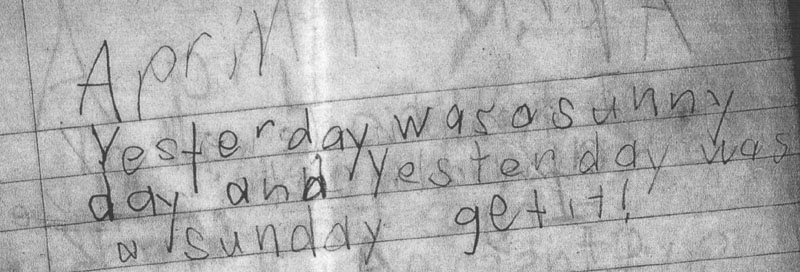 April
Yesterday was a sunny
day and Yestenday was
a sunday get it!